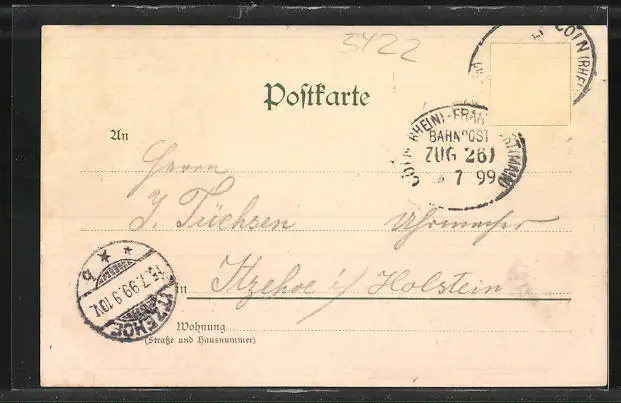 5422
CÖLN (RHEIN)
Postkarte
CÖLN (RHEIN)-FRANKFURT (MAIN)
BAHNPOST
ZUG 261
7 99
An
Herrn
J. Tüchsen Uhrmacher
in Itzehoe i/ Holstein
ITZEHOE
15.7.99.9-10V.
Wohnung
(Straße und Hausnummer)